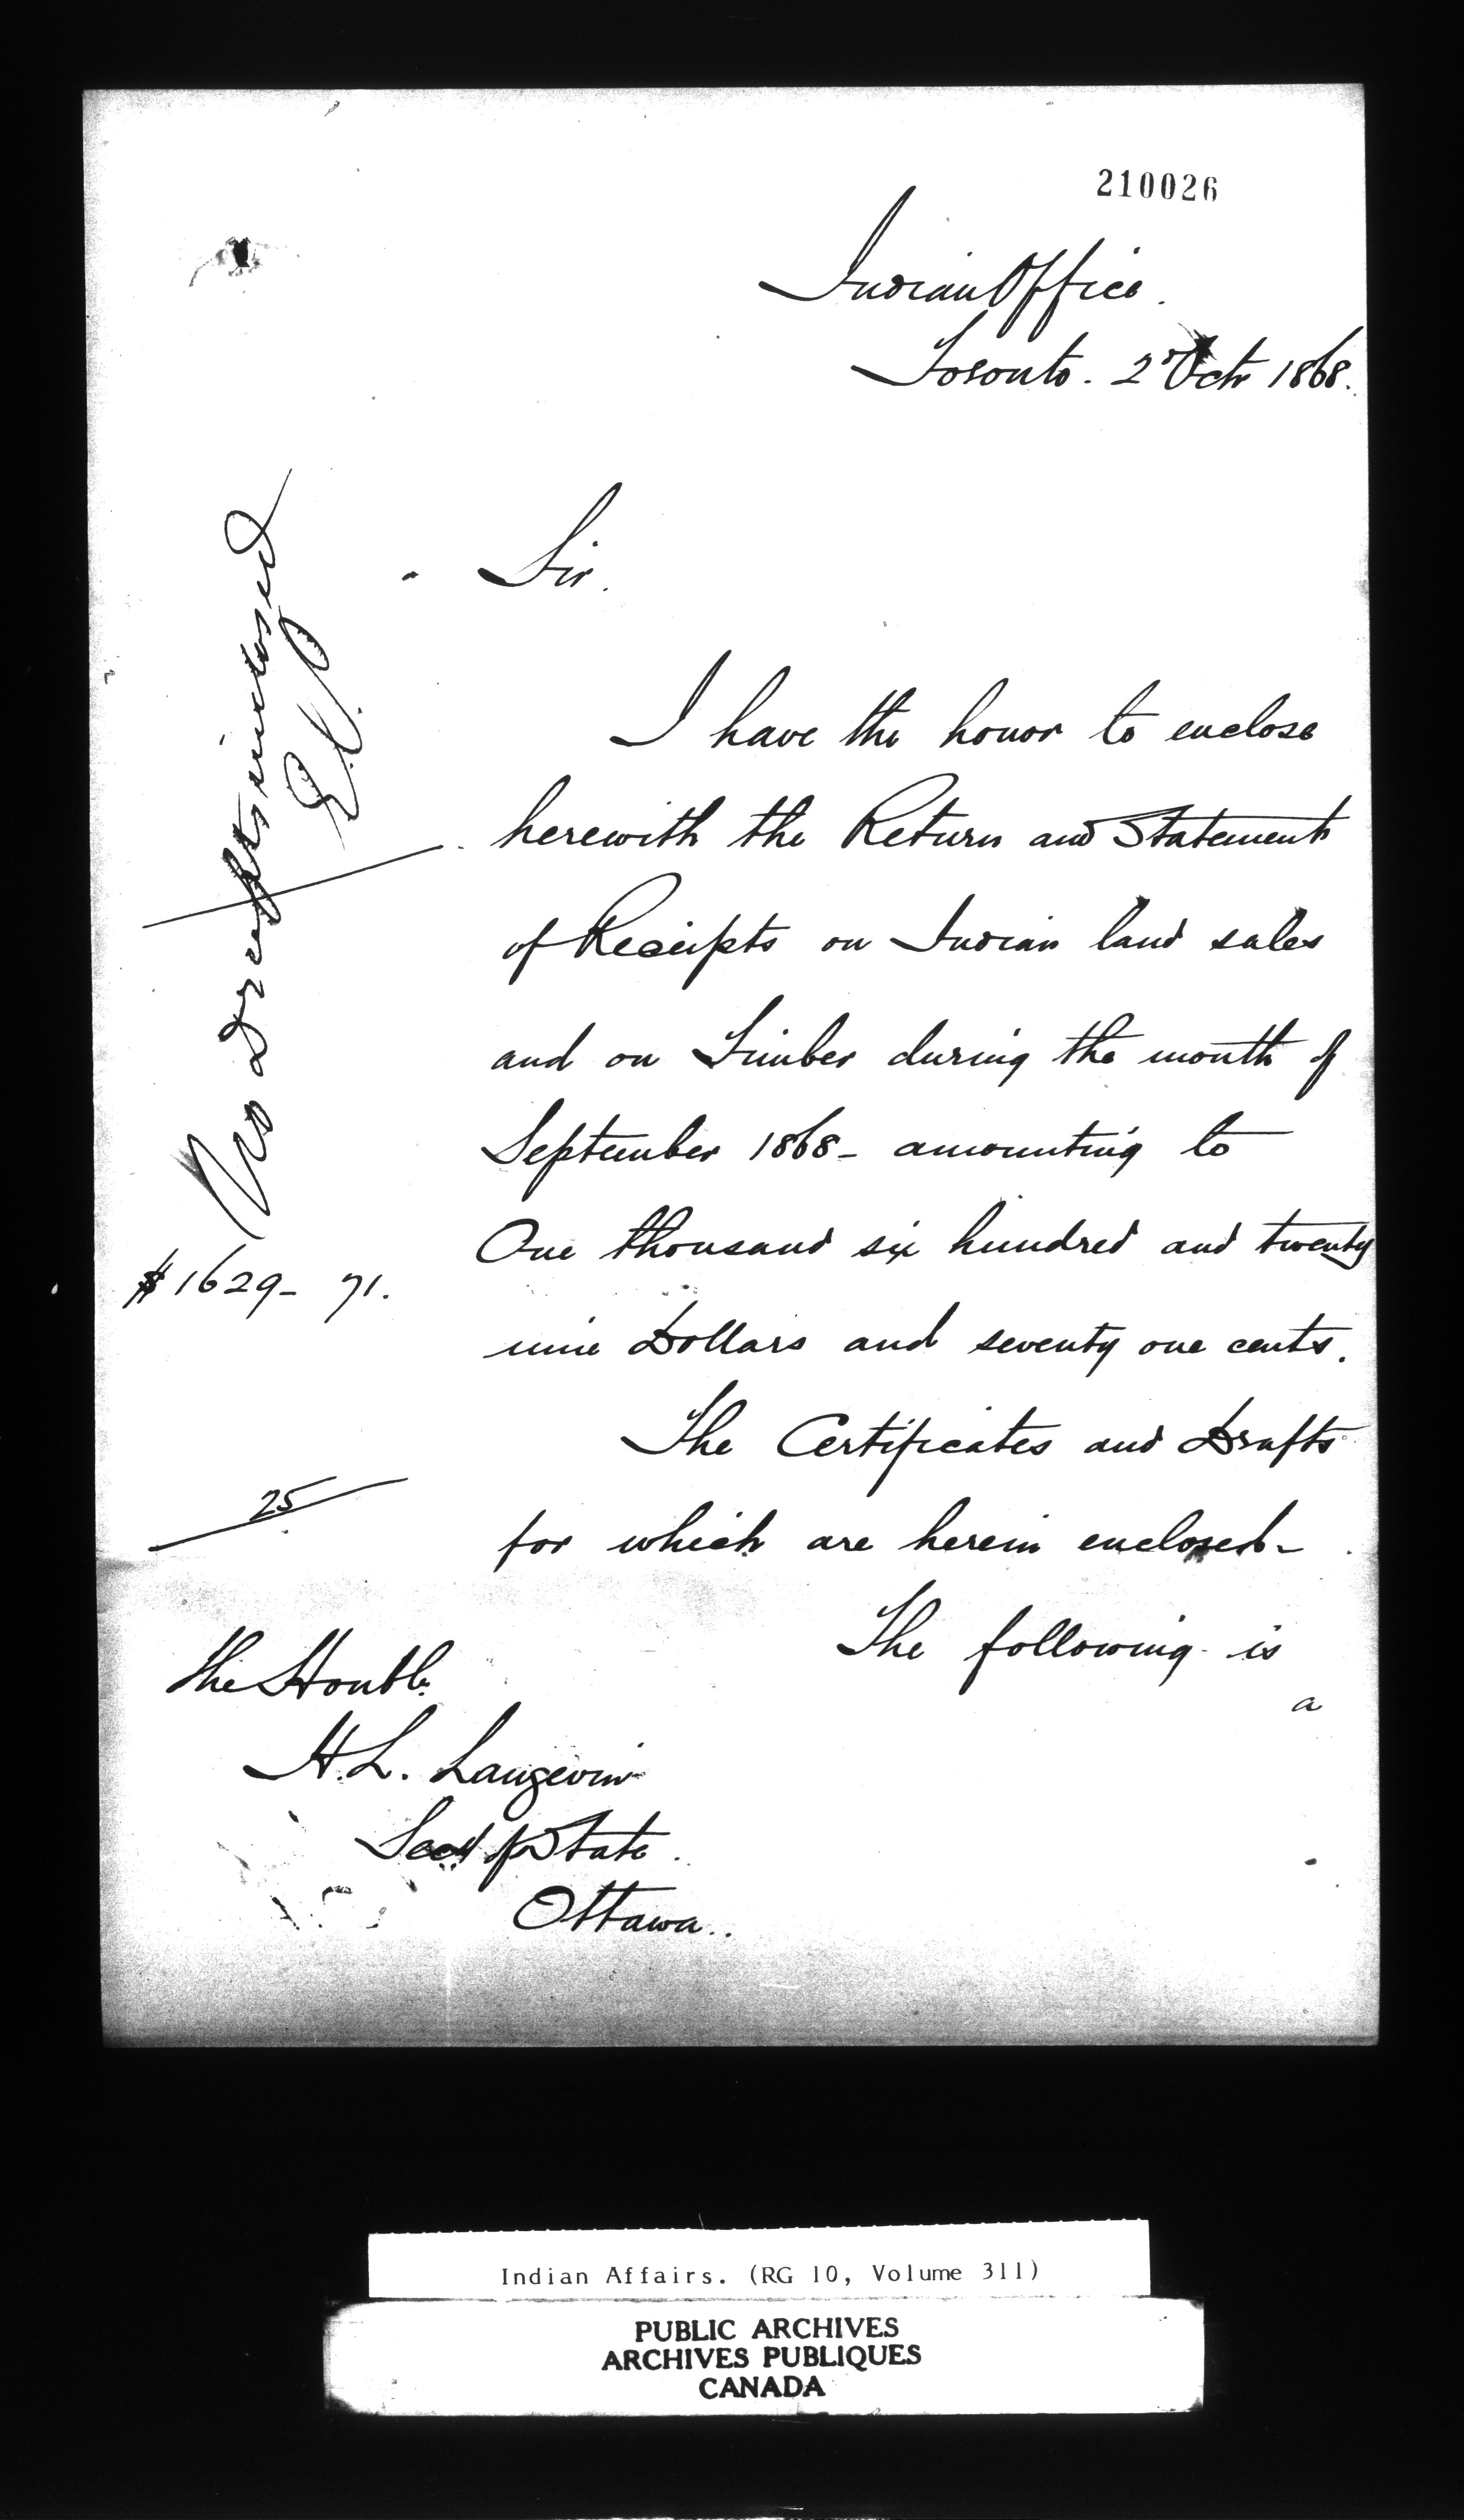 210026
Indian Office.
Toronto. 2d Octr 1868.
Sir.
I have the honor to enclose
herewith the Return and Statement
of Receipts on Indian land sales
and on Timber during the month of
September 1868 - amounting to
One thousand six hundred and twenty
$1629 - 71.
nine Dollars and seventy one cents.
The Certificates and Drafts
for which are herein enclosed -
25
The following is
a
The Honble
H.L. Langevin
Secy of State.
Ottawa..
No drafts inclosed
Indian Affairs. (RG 10, Volume 311)
PUBLIC ARCHIVES
ARCHIVES PUBLIQUES
CANADA